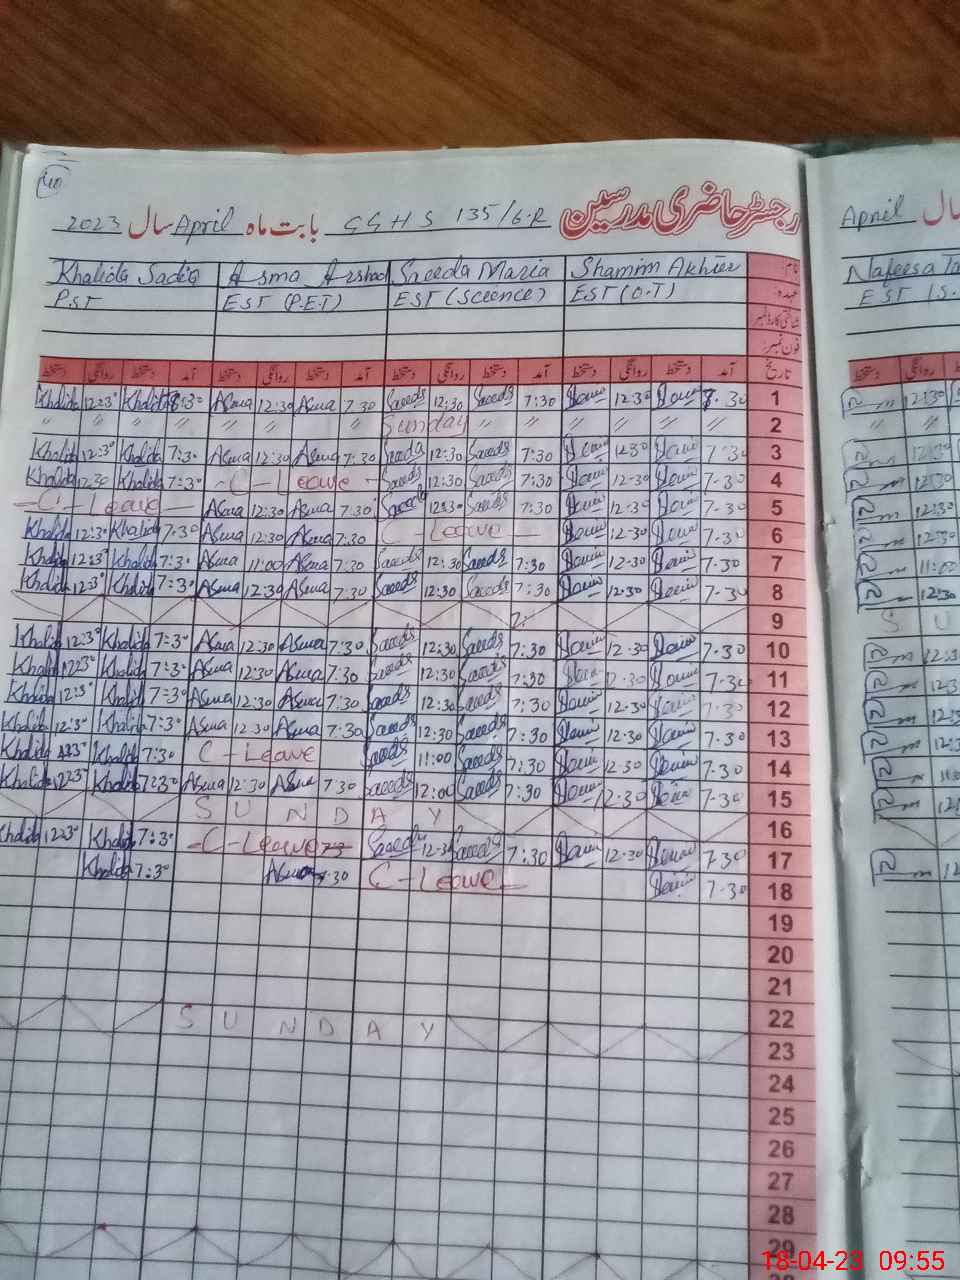 40
رجسٹر حاضری مدرسین GGHS 135/6-R بابت ماہ April سال 2023
نام Shamim Akhter Saeeda Maria Asma Arshad Khalida Sadiq
عہدہ: EST (O.T) EST (Science) EST (P.E.T) P.S.T
شناختی کارڈ نمبر
فون نمبر:
تاریخ آمد دستخط روانگی دستخط آمد دستخط روانگی دستخط آمد دستخط روانگی دستخط آمد دستخط روانگی دستخط
Khalida 12:30 Khalida 8:30 Asma 12:30 Asma 7.30 Saeeda 12:30 Saeeda 7:30 12.30 7.30 1
" " " " " " " " Sunday " " " " " " 2
Khalida 12:30 Khalida 7:30 Asma 12:30 Asma 7.30 Saeeda 12:30 Saeeda 7:30 12.30 7.30 3
Khalida 12.30 Khalida 7:30 - C - Leave - Saeeda 12:30 Saeeda 7:30 12.30 7.30 4
- C - Leave - Asma 12:30 Asma 7.30 Saeeda 12:30 Saeeda 7:30 12.30 7.30 5
Khalida 12:30 Khalida 7.30 Asma 12:30 Asma 7.30 C - Leave - 12.30 7.30 6
Khalida 12:30 Khalida 7:30 Asma 11:00 Asma 7.30 Saeeda 12:30 Saeeda 7:30 12.30 7.30 7
Khalida 12:30 Khalida 7:30 Asma 12:30 Asma 7.30 Saeeda 12:30 Saeeda 7:30 12.30 7.30 8
9
Khalida 12:30 Khalida 7:30 Asma 12:30 Asma 7.30 Saeeda 12:30 Saeeda 7:30 12.30 7.30 10
Khalida 12:30 Khalida 7:30 Asma 12:30 Asma 7.30 Saeeda 12:30 Saeeda 7:30 12.30 7.30 11
Khalida 12:30 Khalida 7:30 Asma 12:30 Asma 7.30 Saeeda 12:30 Saeeda 7:30 12.30 7.30 12
Khalida 12:30 Khalida 7:30 Asma 12:30 Asma 7.30 Saeeda 12:30 Saeeda 7:30 12.30 7.30 13
Khalida Khalida 7:30 C - Leave Saeeda 11:00 Saeeda 7:30 12.30 7.30 14
Khalida 12:30 Khalida 7:30 Asma 12:30 Asma 7.30 Saeeda 12:00 Saeeda 7:30 12.30 7.30 15
S U N D A Y 16
Khalida 12:30 Khalida 7:30 - C - Leave Saeeda 12:30 Saeeda 7:30 12.30 7.30 17
Khalida 7:30 Asma 7.30 C - Leave - 7.30 18
19
20
21
22
S U N D A Y 23
24
25
26
27
28
29
سال April
Nafeesa
EST
روانگی دستخط
12:30
" "
12:30
12:30
12:30
12:30
11:00
12:30
S U
18-04-23 09:55